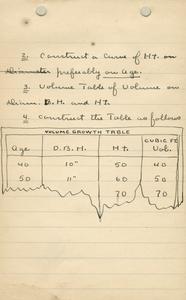 2. Construct a Curve of Ht. on
Diameter preferably on Age.
3. Volume Table of Volume on
Diam. B.H. and Ht.
4. Construct the Table as follows
VOLUME GROWTH TABLE
Age D.B.H. Ht. CUBIC FT Vol.
40 10" 50 40
50 11" 60 50
70 70